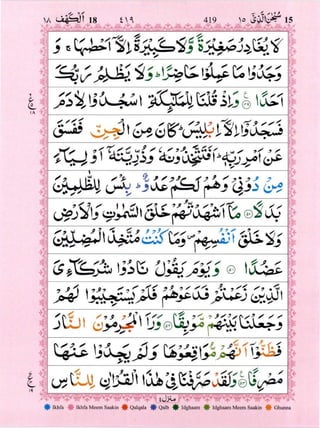 ١٨ اَلْكَهْف 18 ٤١٩ 419 سُبْحٰنَ الَّذِیْۤ ١٥ 15
لَا یُغَادِرُ صَغِیْرَةً وَّلَا كَبِیْرَةً اِلَّاۤ اَحْصٰىهَاۚ وَ
وَجَدُوْا مَا عَمِلُوْا حَاضِرًاؕ وَلَا یَظْلِمُ رَبُّكَ
اَحَدًا۠ ۝٤٩ وَاِذْ قُلْنَا لِلْمَلٰٓىِٕكَةِ اسْجُدُوْا لِاٰدَمَ
فَسَجَدُوْۤا اِلَّاۤ اِبْلِیْسَؕ كَانَ مِنَ الْجِنِّ فَفَسَقَ
عَنْ اَمْرِ رَبِّهٖؕ اَفَتَتَّخِذُوْنَهٗ وَذُرِّیَّتَهٗۤ اَوْلِیَآءَ
مِنْ دُوْنِیْ وَهُمْ لَكُمْ عَدُوٌّؕ بِئْسَ لِلظّٰلِمِیْنَ
بَدَلًا ۝٥٠ مَاۤ اَشْهَدْتُّهُمْ خَلْقَ السَّمٰوٰتِ وَالْاَرْضِ
وَلَا خَلْقَ اَنْفُسِهِمْ۪ وَمَا كُنْتُ مُتَّخِذَ الْمُضِلِّیْنَ
عَضُدًا ۝٥١ وَیَوْمَ یَقُوْلُ نَادُوْا شُرَكَآءِیَ
الَّذِیْنَ زَعَمْتُمْ فَدَعَوْهُمْ فَلَمْ یَسْتَجِیْبُوْا لَهُمْ
وَجَعَلْنَا بَیْنَهُمْ مَّوْبِقًا ۝٥٢ وَرَاَ الْمُجْرِمُوْنَ النَّارَ
فَظَنُّوْۤا اَنَّهُمْ مُّوَاقِعُوْهَا وَلَمْ یَجِدُوْا عَنْهَا
مَصْرِفًا۠ ۝٥٣ وَلَقَدْ صَرَّفْنَا فِیْ هٰذَا الْقُرْاٰنِ لِلنَّاسِ
منزل٤
Ikhfa Ikhfa Meem Saakin Qalqala Qalb Idghaam Idghaam Meem Saakin Ghunna